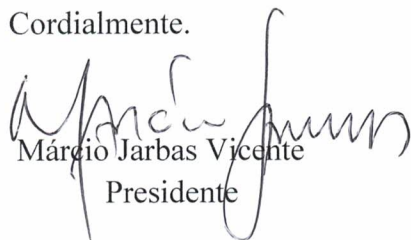 Cordialmente.
Márcio Jarbas Vicente
Presidente